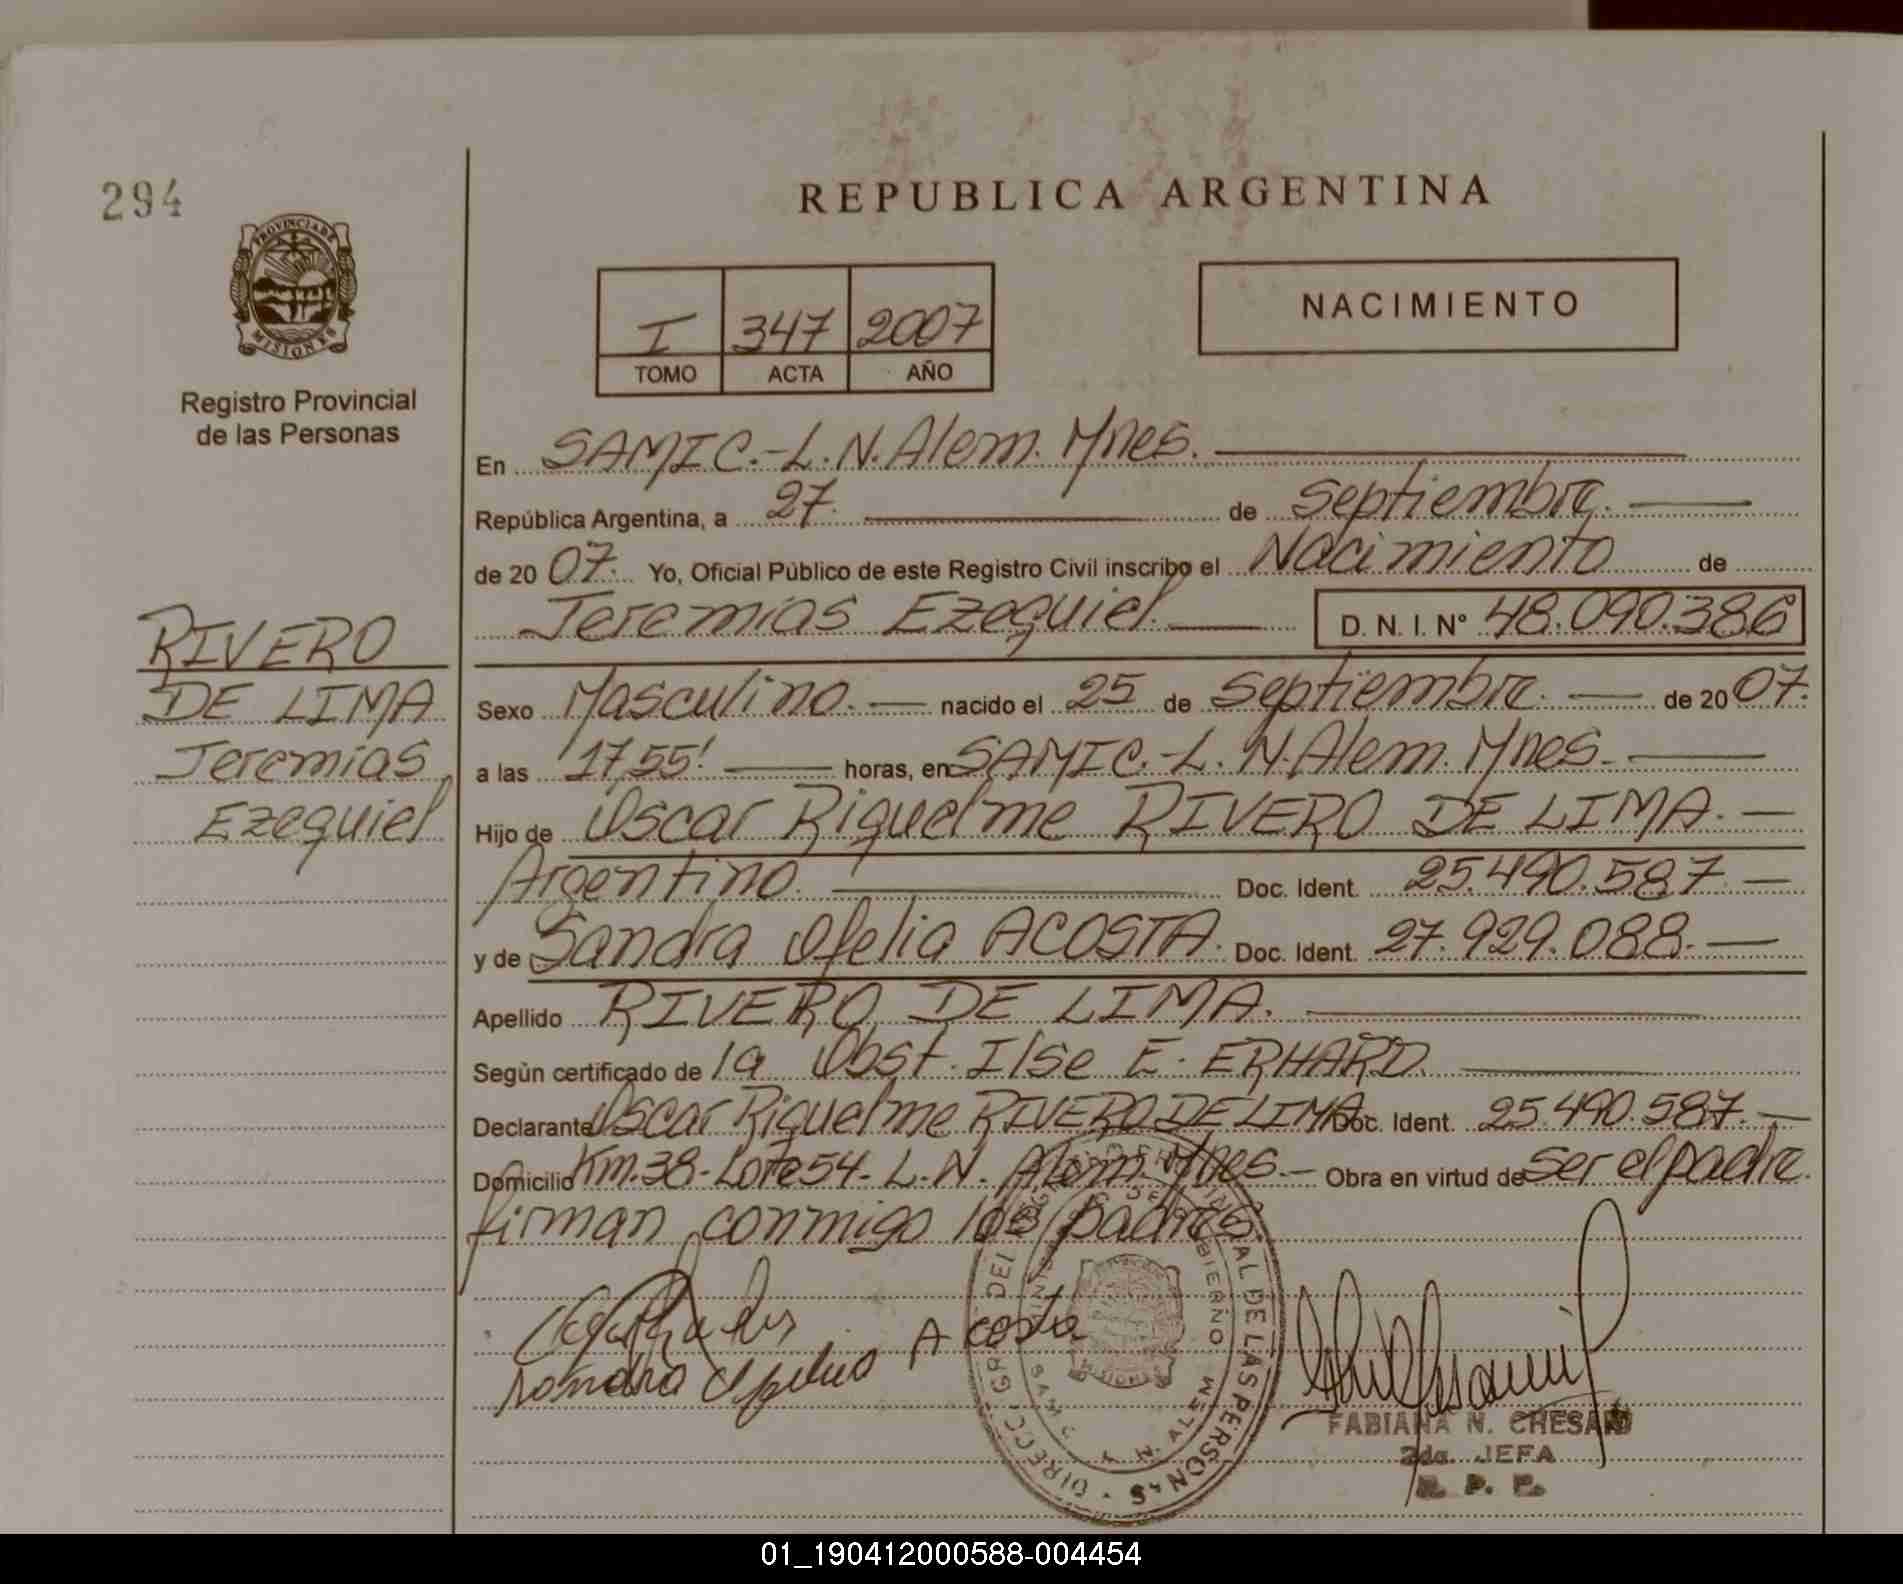 294
REPUBLICA ARGENTINA
PROVINCIA DE
MISIONES
Registro Provincial
de las Personas
I 347 2007
TOMO ACTA AÑO
NACIMIENTO
En SAMIC.-L.N.Alem. Mnes.
República Argentina, a 27. de Septiembre.
de 20 07. Yo, Oficial Público de este Registro Civil inscribo el Nacimiento de
Jeremias Ezequiel. D. N. I. N° 48.090.386
RIVERO
DE LIMA
Jeremias
Ezequiel
Sexo Masculino. nacido el 25 de Septiembre. de 20 07.
a las 17,55' horas, en SAMIC.-L. N. Alem. Mnes.
Hijo de Oscar Riquelme RIVERO DE LIMA.
Argentino. Doc. Ident. 25.490.587
y de Sandra Ofelia ACOSTA. Doc. Ident. 27.929.088.
Apellido RIVERO DE LIMA.
Según certificado de la Obst. Ilse E. ERHARD.
Declarante Oscar Riquelme RIVERO DE LIMA Doc. Ident. 25.490.587.
Domicilio Km.38-Lote54-L.N. Alem. Mnes. Obra en virtud de ser el padre.
firman conmigo los padres.
Acosta
DIRECC. GR. DEL REGISTRO PROVINCIAL DE LAS PERSONAS
L. N. ALEM
MISIONES
FABIANA N. CHESANI
2da. JEFA
R. P. P.
01_190412000588-004454